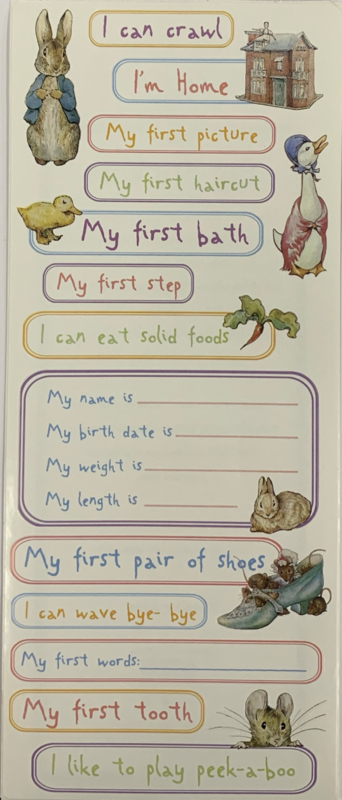 I can crawl
I'm Home
My first picture
My first haircut
My first bath
My first step
I can eat solid foods
My name is
My birth date is
My weight is
My length is
My first pair of shoes
I can wave bye- bye
My first words:
My first tooth
I like to play peek-a-boo